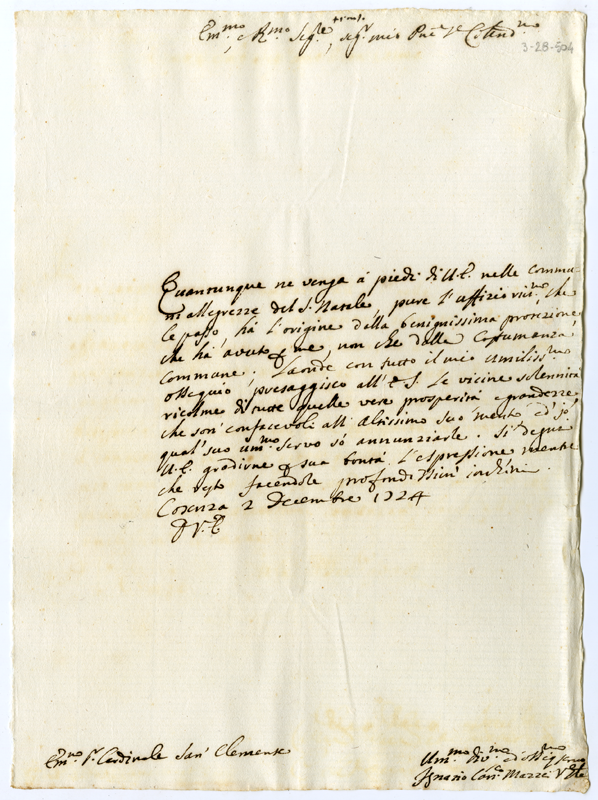 Em.mo e R.mo Sig.re Sig.r mio P.ne Colend.mo
3-28-504
Quantunque ne venga à piedi di V.E. nelle commu-
ni allegrezze del S. Natale, pure l'uffizio che
le passo, hà l'origine dalla benignissima protezione
che hà avuto me, non che dalla costumanza
commune. Laonde con tutto il mio umiliss.mo
ossequio presaggisco all'E.S. le vicine solennità
ricolme di tutte quelle vere prosperità e grandezze,
che son' confacevoli all'altissimo suo merito, ch'io,
qual suo um.mo servo sò annunziarle. Si degni
V.E. gradirne sua bontà l'espressione mentre
che resto facendole profondissimi inchini.
Cosenza 2 Decembre 1724
D V.E.
Em.mo S.r Cardinale San Clemente
Um.mo Div.mo ed Obblig.mo
Ignazio